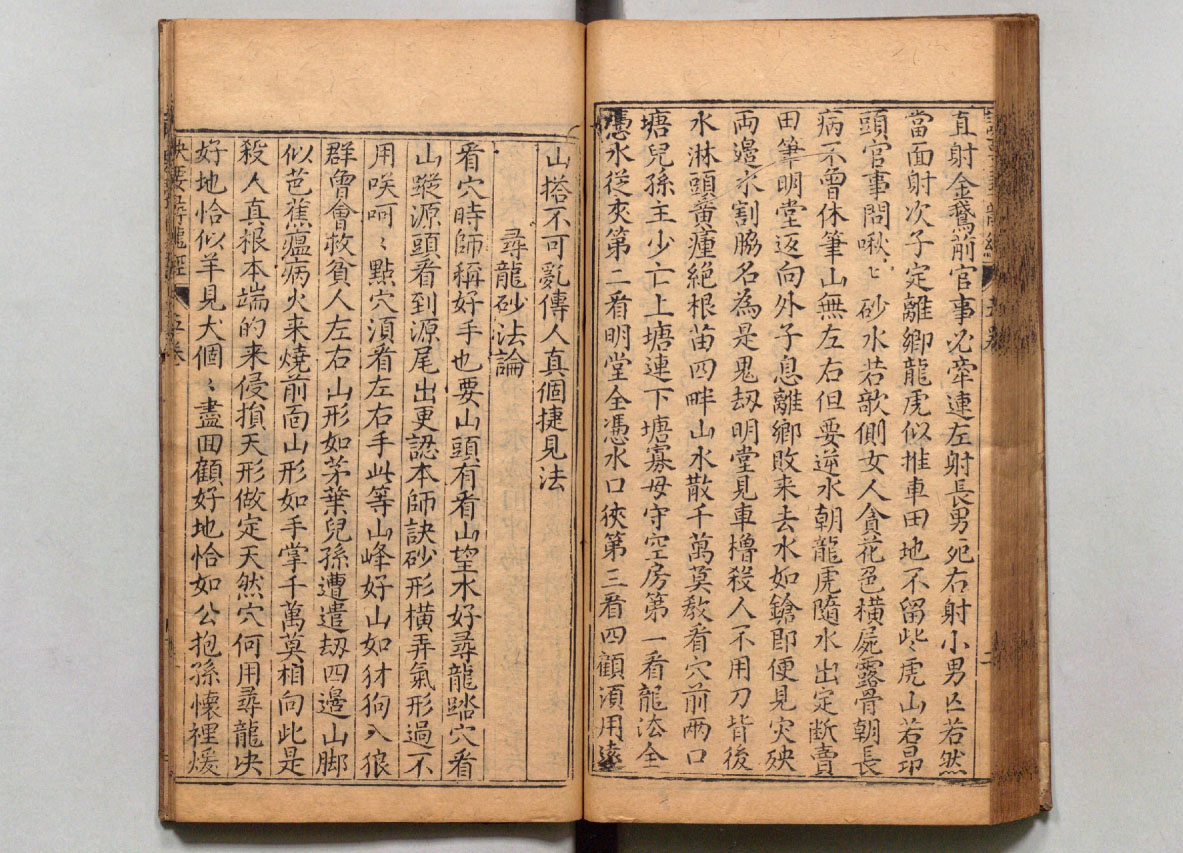 直射金鵞前官事必牽連左射長男死右射小男亡若然
當面射次子定離鄉龍虎似推車田地不留些虎山若昂
頭官事問啾〻砂水若欹側女人貪花色橫屍露骨朝長
病不曾休筆山無左右但要逆水朝龍虎隨水出定断賣
田筆明堂返向外子息離鄉敗来去水如鎗即便見灾殃
両邊水割脇名為是鬼刼明堂見車櫓殺人不用刀皆後
水淋頭黄瘇絕根苗四畔山水散千萬莫教看穴前两口
塘兒孫主少亡上塘連下塘寡母守空房第一看龍法全
憑水従夾第二看明堂全憑水口狹第三看四顧須用遠
山撘不可亂傳人真個捷見法
尋龍砂法論
看穴時師稱好手也要山頭有看山望水好尋龍踏穴看
山蹤源頭看到源尾出更認本師訣砂形橫弄氣形過不
用咲呵〻點穴須看左右手此等山峰好山如犲狗入狼
群曾會救貧人左右山形如茅葉兒孫遭遣刼四邊山脚
似芭蕉瘟病火来燒前面山形如手掌千萬莫相向此是
殺人真根本端的来侵損天形做定天然穴何用尋龍决
好地恰似羊見犬個〻盡囬顧好地恰如公抱孫懷裡煖
决要尋龍經 五卷